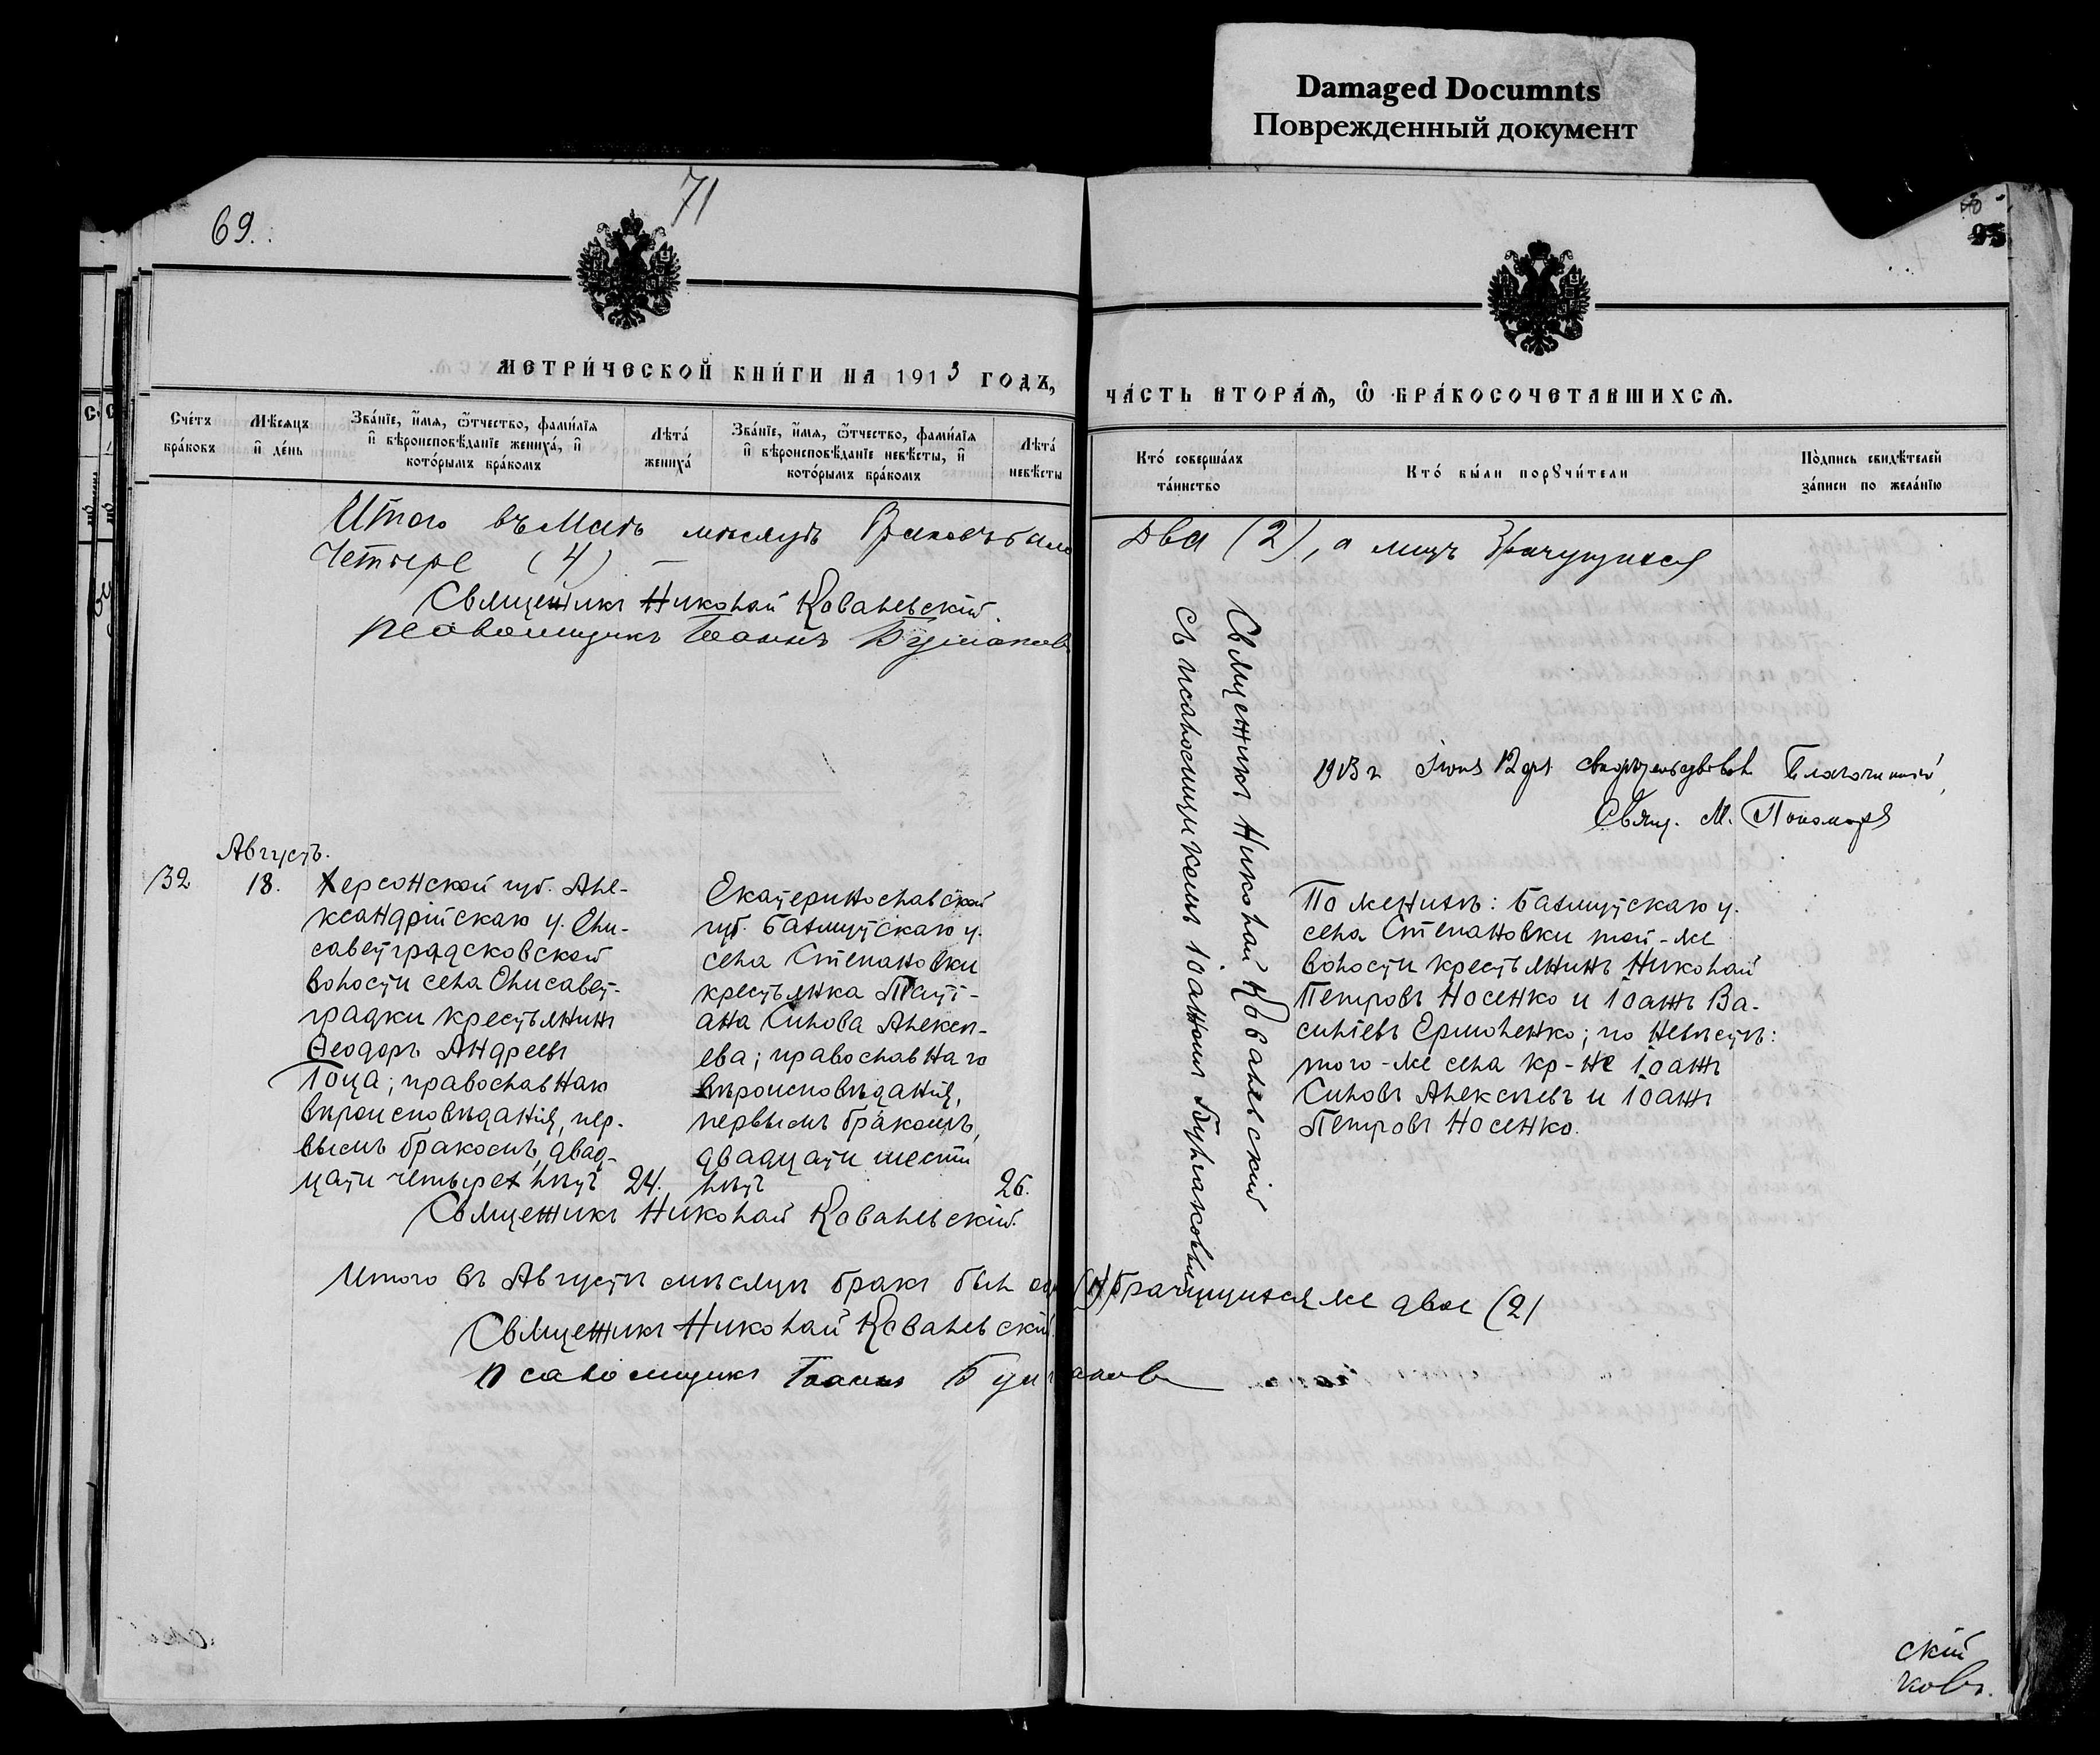 Damaged Documnts
Поврежденный документ
69.
71
95
МЕТРИ́ЧЕСКОЙ КНИ́ГИ НА 1913 ГОДЪ,
ЧА́СТЬ ВТОРА́Ѧ, Ѡ БРА́КОСОЧЕТАВШИХСѦ.
Сче́тъ бра́ковъ
Мѣ́сѧцъ и҆ де́нь
Зва́нїе, и҆́мѧ, ѻ҆́тчество, фами́лїѧ
и҆ вѣроисповѣ́данїе жениха̀, и҆
кото́рымъ бра́комъ
Лѣта̀
жениха̀
Зва́нїе, и҆́мѧ, ѻ҆́тчество, фами́лїѧ
и҆ вѣроисповѣ́данїе невѣ́сты, и҆
кото́рымъ бра́комъ
Лѣта̀
невѣ́сты
Кто̀ соверша́лъ
та́инство
Кто̀ бы́ли порꙋчи́тели
По́дпись свидѣ́телей
за́писи по жела́нїю
Итого въ Маѣ мѣсяцѣ браковъ было Два (2), а лицъ брачущихся
Четыре (4)
Священникъ Николай Ковалевскій.
Псаломщикъ Іоаннъ
1913 г. Іюня 12 дня свидѣтельствовалъ Благочинный,
Свящ. М. Пономарев
Августъ.
32
18.
Херсонской губ. Але-
ксандрійскаго у. Ели-
саветградковской
волости села Елисавет-
градки крестьянинъ
Ѳеодоръ Андреевъ
Гоца; православнаго
вѣроисповѣданія, пер-
вымъ бракомъ, двад-
цати четырехъ лѣтъ
24.
Екатеринославской
губ. Бахмутскаго у.
села Степановки
крестьянка Тать-
ана Силова Алексѣ-
ева; православнаго
вѣроисповѣданія,
первымъ бракомъ,
двадцати шести
лѣтъ
26.
Священникъ Николай Ковалевскій
съ псаломщикомъ Іоанномъ
По женихѣ: Бахмутскаго у.
села Степановки той-же
волости крестьянинъ Николай
Петровъ Носенко и Іоаннъ Ва-
силіевъ Ермоленко; по невѣстѣ:
того-же села кр-не Іоаннъ
Силовъ Алексѣевъ и Іоаннъ
Петровъ Носенко.
Священникъ Николай Ковалевскій.
Итого въ Августѣ мѣсяцѣ бракъ былъ од. (1) брачущихся же двое (2)
Священникъ Николай Ковалевскій.
Псаломщикъ Іоаннъ
скій
ковъ.